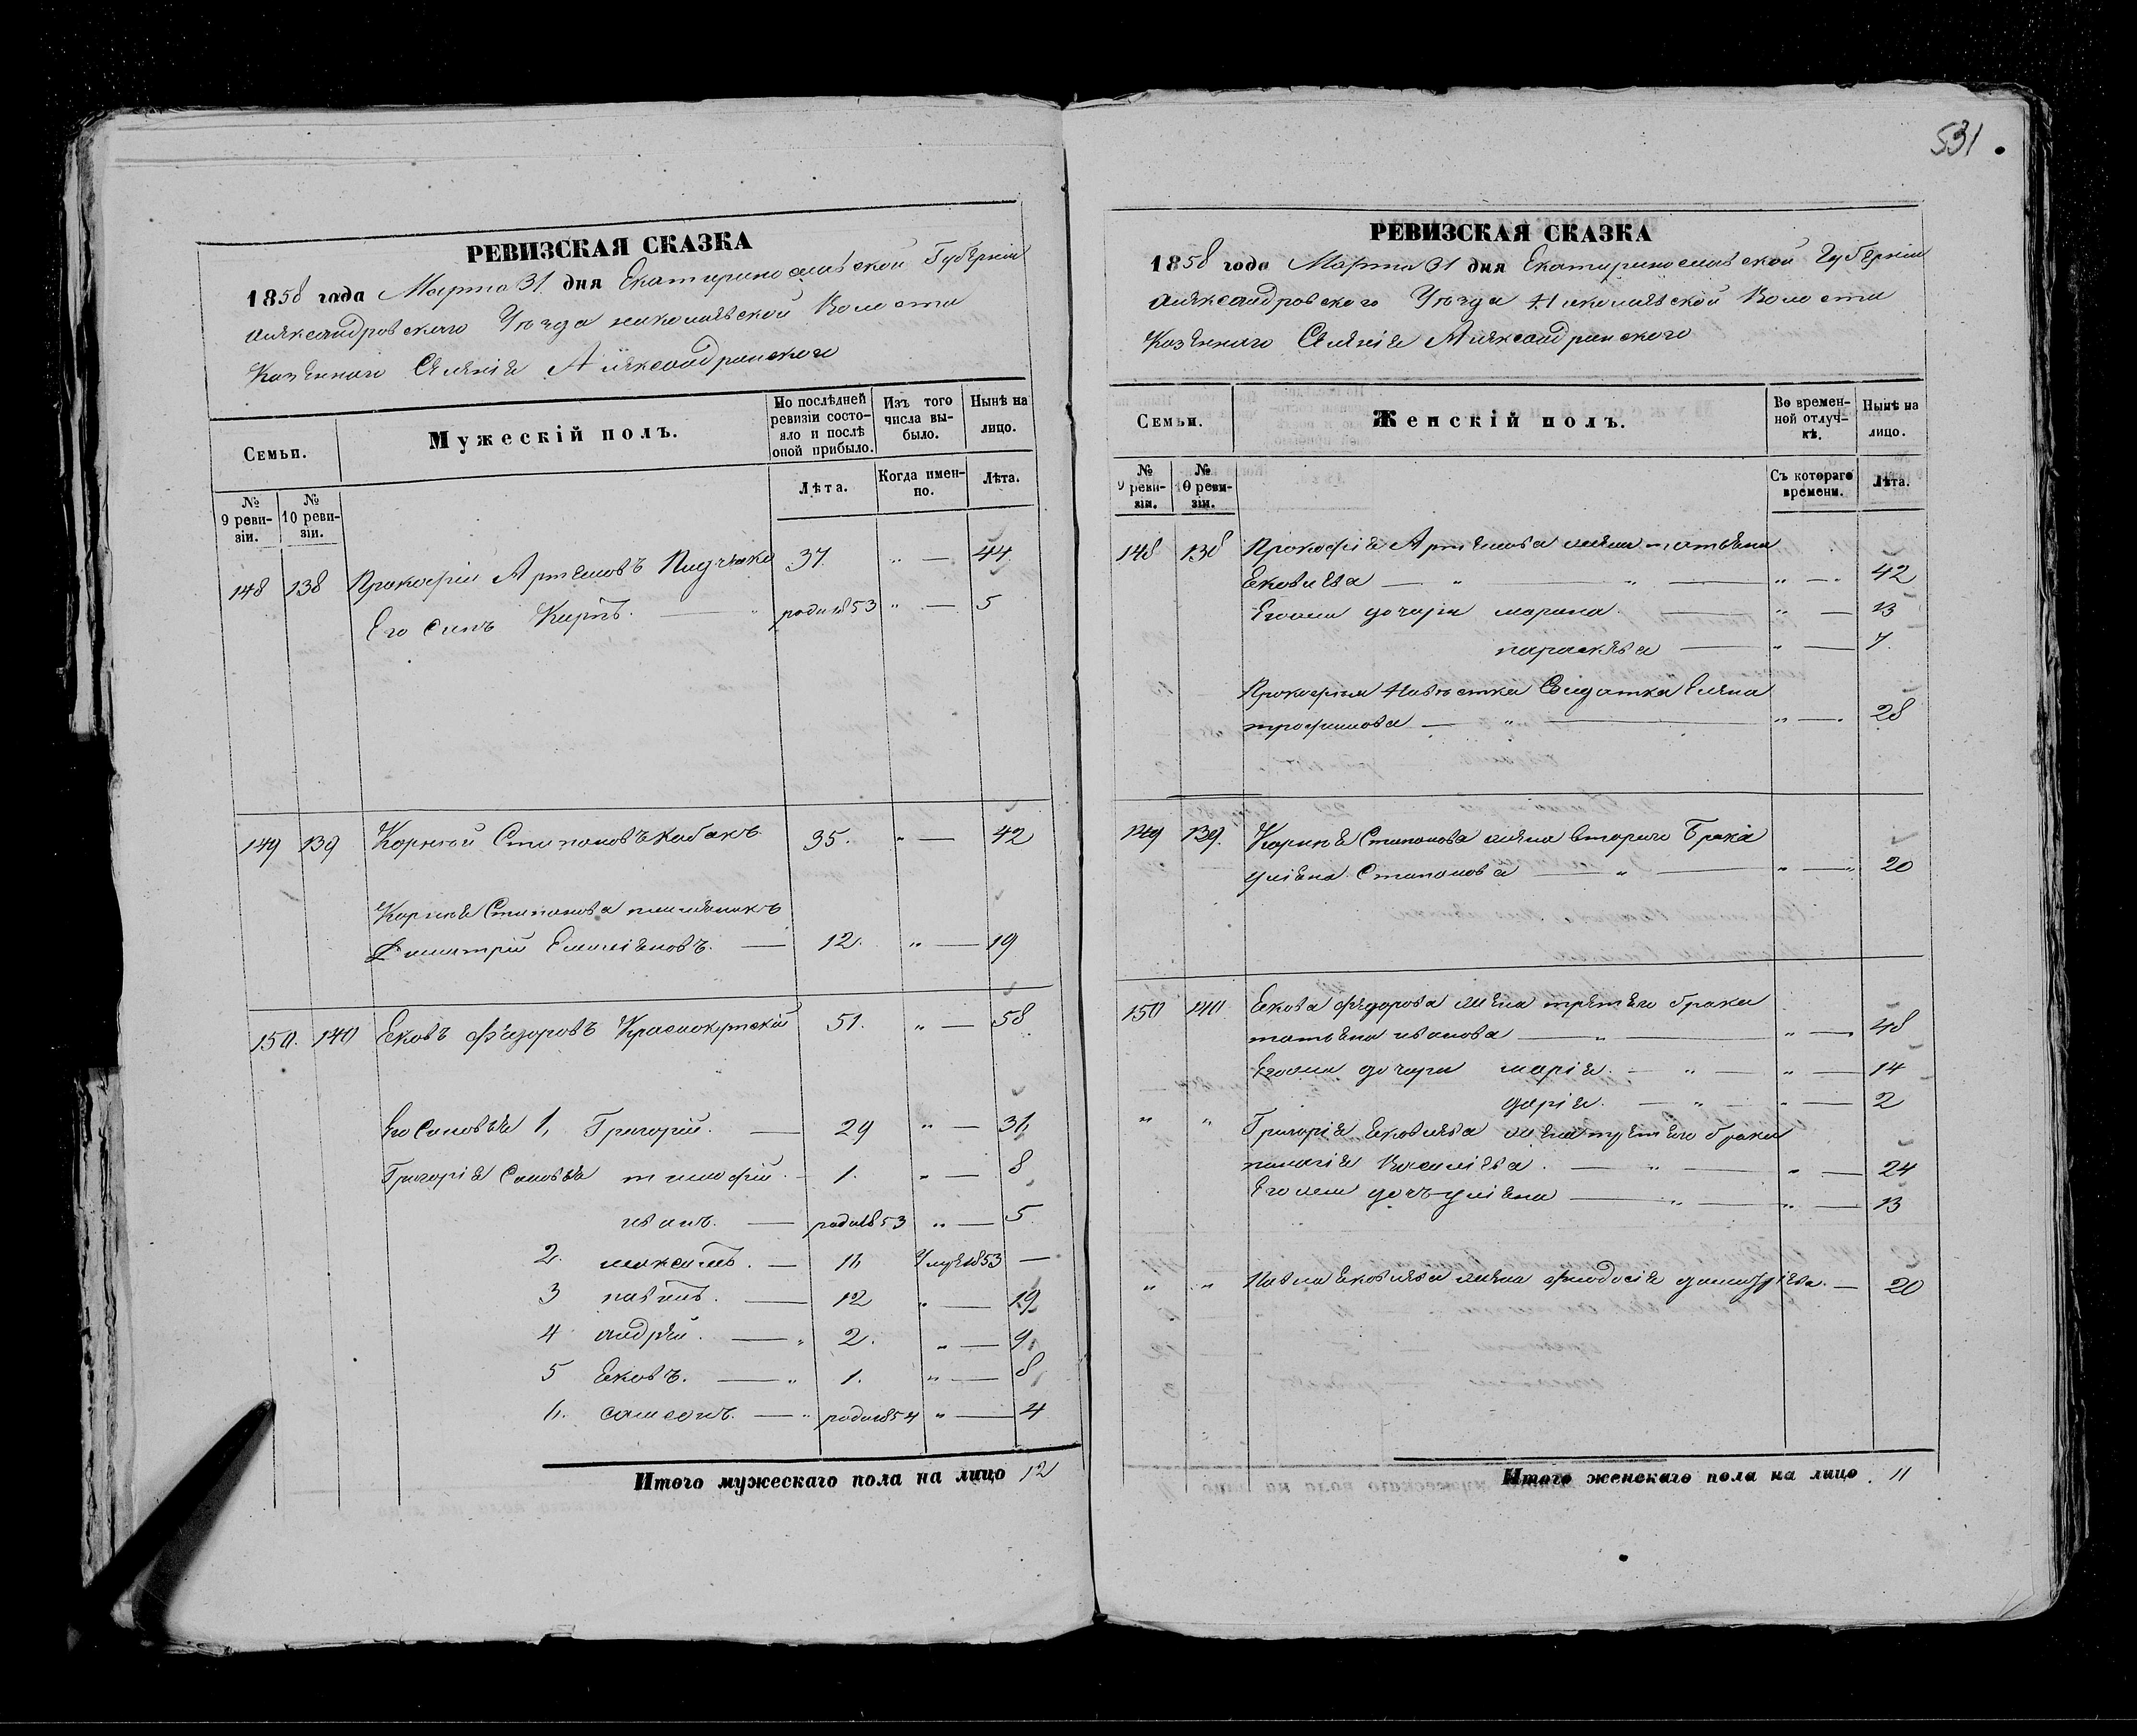 531
РЕВИЗСКАЯ СКАЗКА
1858 года Марта 31 дня Екатеринославской Губерніи
Александровскаго Уѣзда николаевской Волости
Казенного Селенія Александринского
Семьи.
Мужескій полъ.
По послѣдней ревизіи состояло и послѣ оной прибыло.
Изъ того числа выбыло.
Нынѣ на лицо.
№ 9 ревизіи.
№ 10 ревизіи.
Лѣта.
Когда именно.
Лѣта.
148 138 Прокофій Артемовъ 37. " — 44
Его Синъ роди 1853 " — 5
149 139 Корній Стипановъ Кабакъ 35. " — 42
Корнія Стипанова племяникъ
Димитрій Емиліановъ. — 12. " — 19
150. 140 Ековъ Федоровъ Краснокутскій 51. " — 58
Его Синовья 1, Григорій. — 29 " — 36
Григорія Синовья тимофій. — 1. " — 8
иванъ. — роди 1853 " — 5
2. максимъ. — 16 Умре 1853 —
3 павилъ. — 12 " — 19
4 андрей. — " 2. " — 9
5 Ековъ. — " 1. " — 8
6. самсонъ. — " роди 1854 " — 4
Итого мужескаго пола на лицо 12
РЕВИЗСКАЯ СКАЗКА
1858 года Марта 31 дня Екатеринославской Губерніи
Александровского Уѣзда Николаевской Волости
Казенного Селенія Александринского
Семьи.
Женскій полъ.
Во временной отлучкѣ.
Нынѣ на лицо.
№ 9 ревизіи.
№ 10 ревизіи.
Съ котораго времени.
Лѣта.
148 138 Прокофія Артемова жена татьяна
Ековлева — " — " — " — 42
Его жи дочери марина — " — 13
параскева — " — 7
Прокофія Навѣстка Солдатка Елена
трофимова — " — " — 28
149 139. Корнія Стипанова жена втораго Брака
уліяна Стипанова — " — " — 20
150 140 Екова Федорова жена третяго брака
татьяна иванова — " — " — 48
Его жи дочери марія. — " — " — 14
дарія. — " — " — 2
" " ГригоріяЕковлева жена третяго брака
пилагія Василіева. — " — " — 24
Его жи дочъ уліяна — " — " — 13
" " ПавлаЕковлева жена феодосія димитріева. — 20
Итого женскаго пола на лицо 11